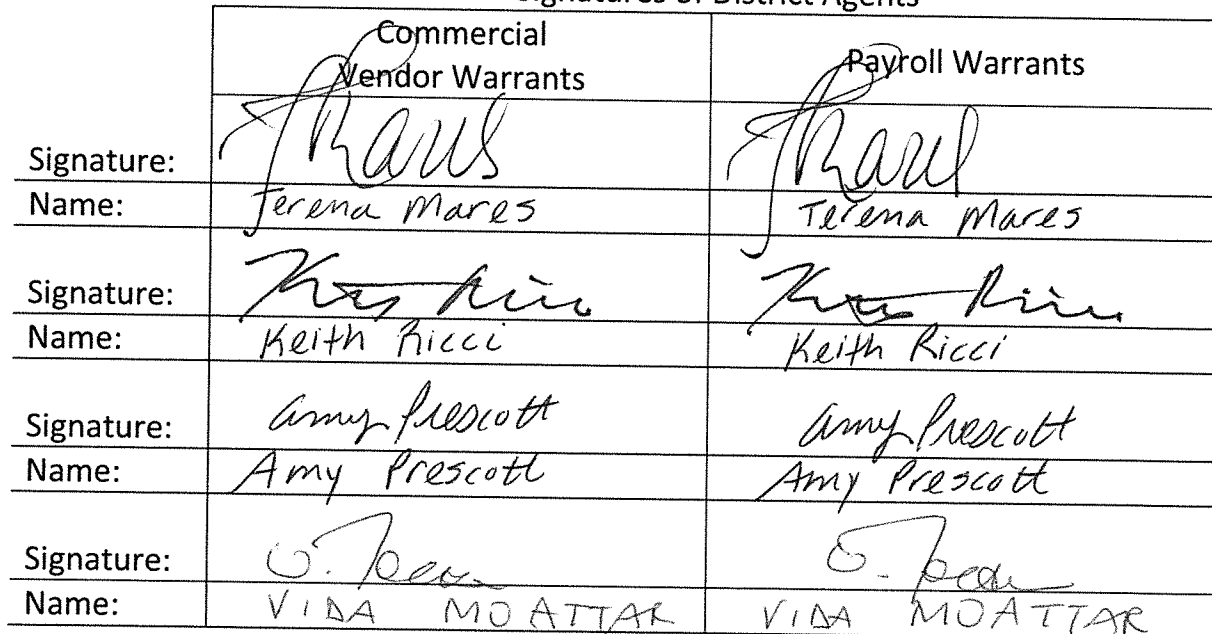 Signatures of District Agents
Commercial
Vendor Warrants
Payroll Warrants
Signature:
Name: Terena Mares Terena Mares
Signature:
Name: Keith Ricci Keith Ricci
Signature: Amy Prescott Amy Prescott
Name: Amy Prescott Amy Prescott
Signature:
Name: VIDA MOATTAR VIDA MOATTAR